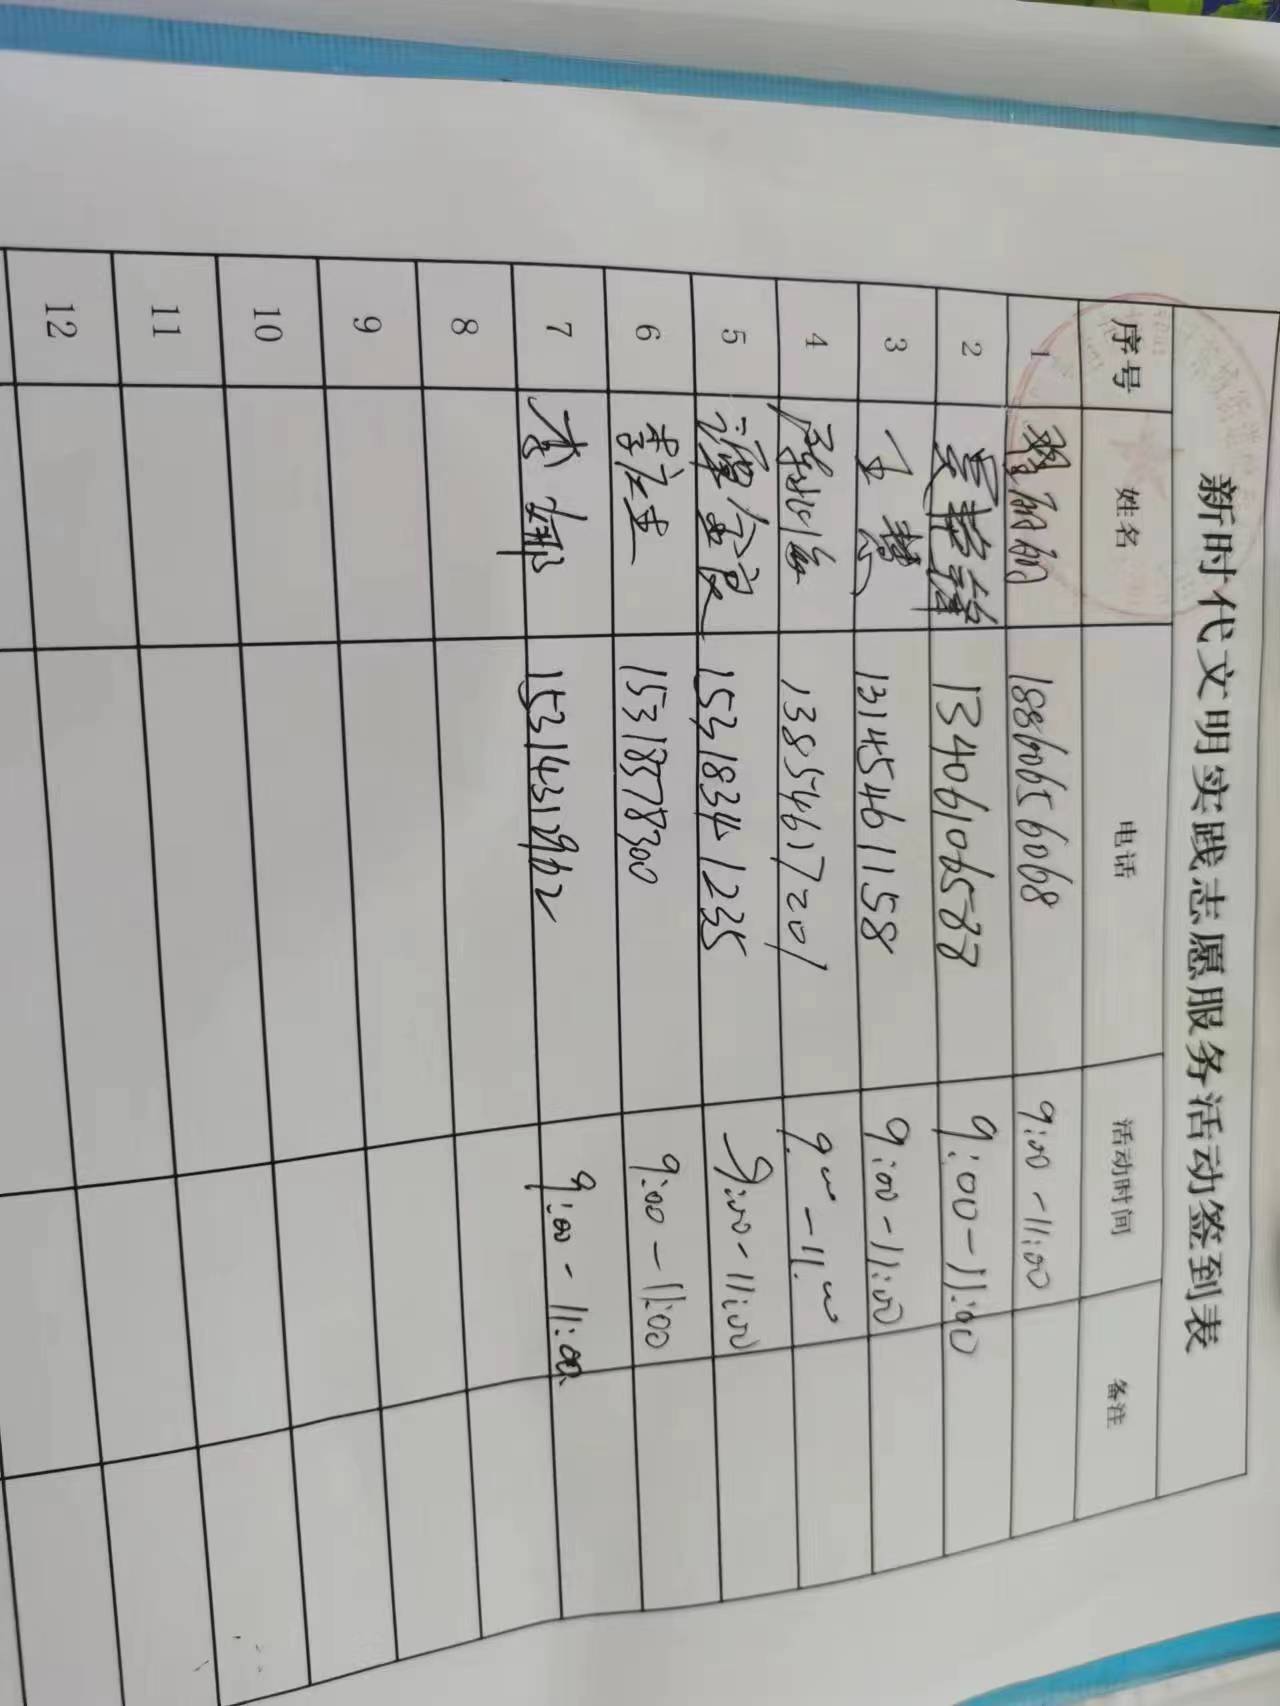 新时代文明实践志愿服务活动签到表
序号 姓名 电话 活动时间 备注
1 丽丽 18860656068 9:00-11:00
2 13406106588 9:00-11:00
3 王慧 13145461158 9:00-11:00
4 13854617201 9:00-11:00
5 谭金良 15318341235 9:00-11:00
6 15318378300 9:00-11:00
7 李娜 15314312962 9:00-11:00
8
9
10
11
12